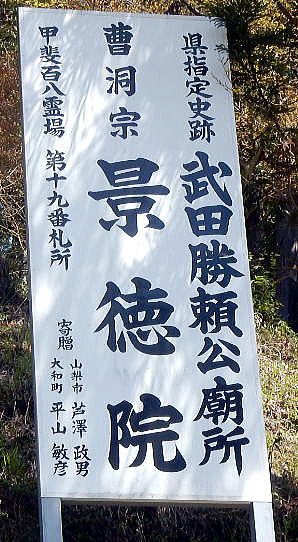 県指定史跡 武田勝頼公廟所
曹洞宗 景徳院
甲斐百八霊場 第十九番札所
寄贈
山梨市 芦澤政男
大和町 平山敏彦